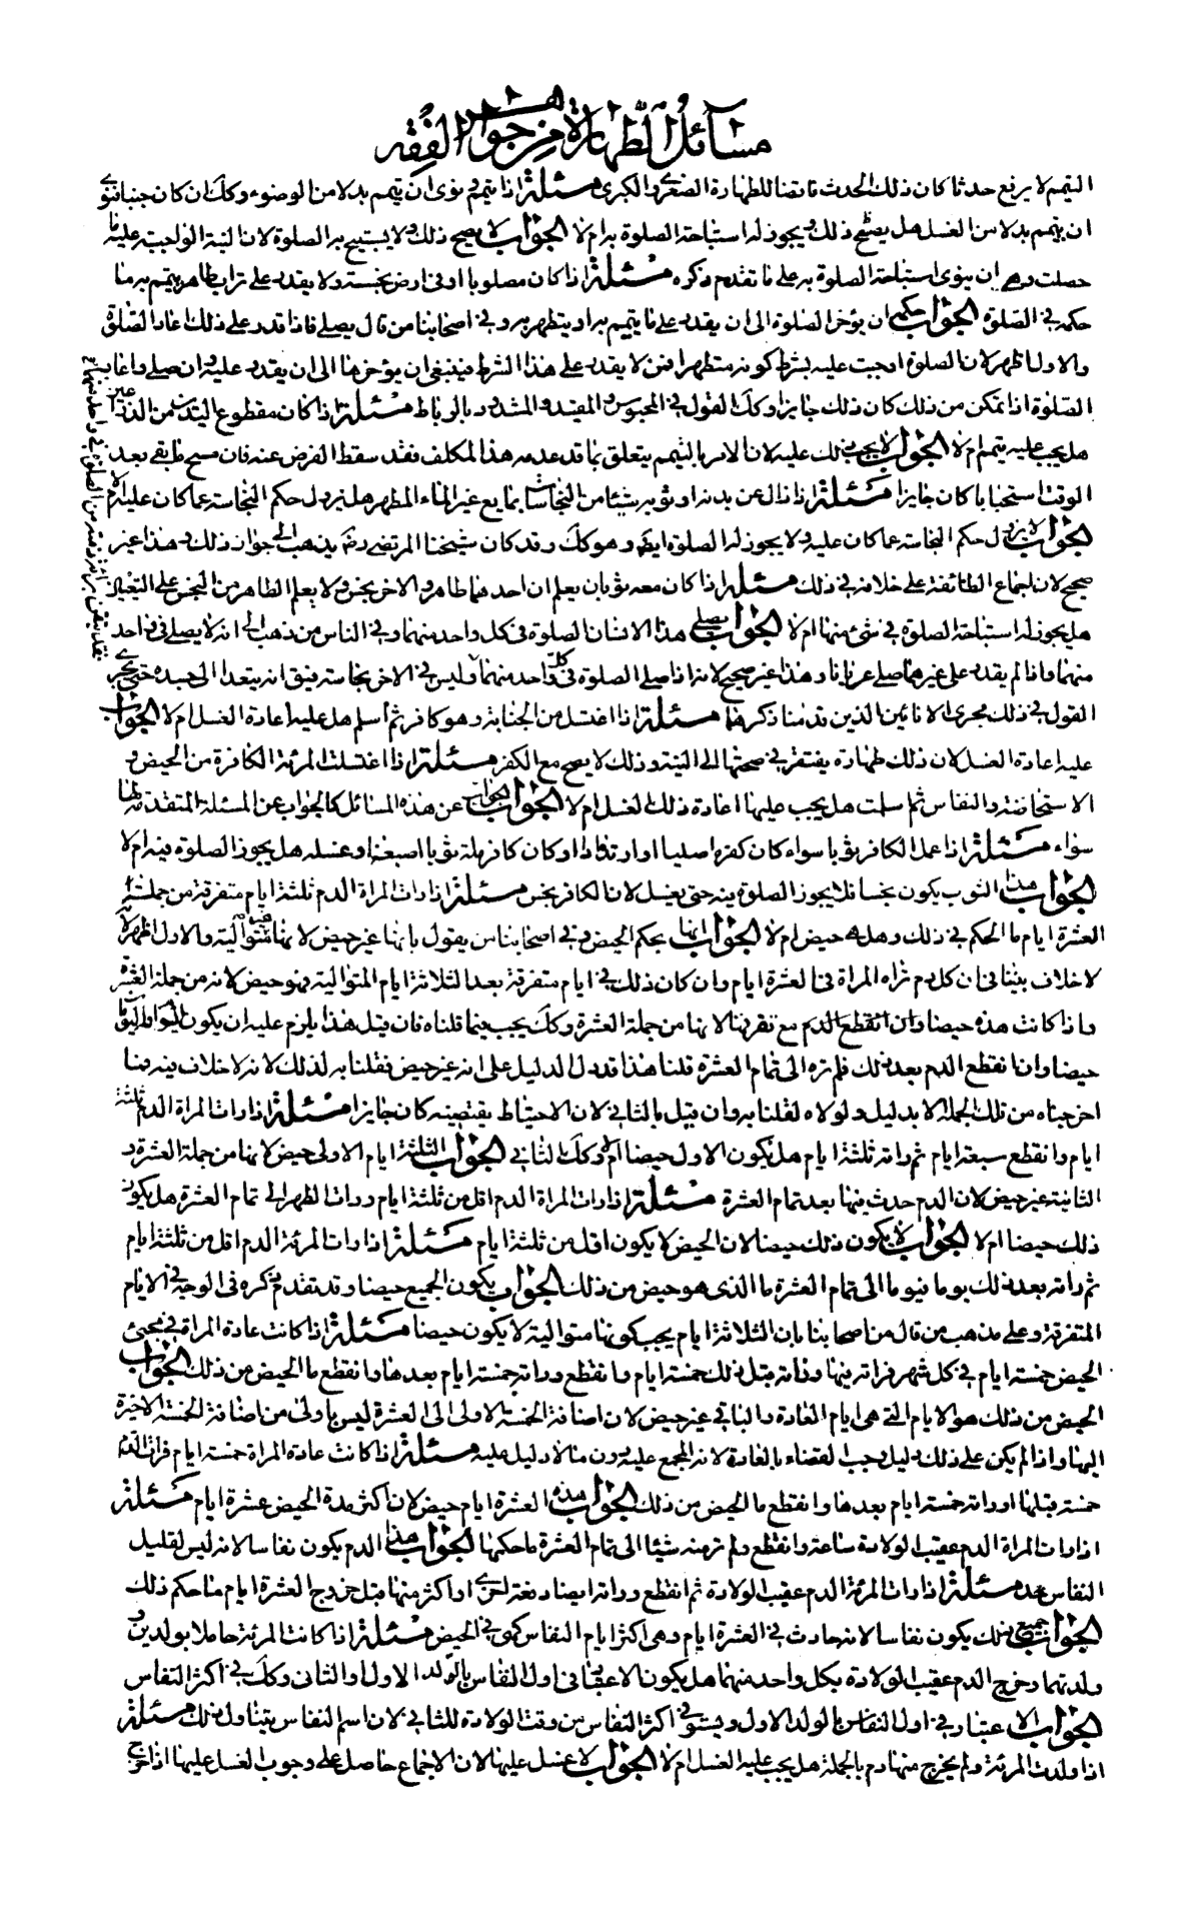 مسائل الطهارة من جواهر الفقه
التيمم لا يرفع حدثا كان ذلك الحدث ناقضا للطهارة الصغرى والكبرى مسئلة اذا تيمم ونوى ان تيمم بدلا من الوضوء وكك ان كان جنبا فنوى
ان يتيمم بدلا من الغسل هل يصح ذلك ويجوز له استباحة الصلوة به ام لا الجواب لا يصح ذلك ولا يستبيح به الصلوة لان النية الواجبة عليه ما
حصلت وهى ان ينوى استباحة الصلوة به على ما تقدم ذكره مسئلة اذا كان مصلوبا او فى ارض نجسة ولا يقدر على تراب طاهر يتمم به ما
حكمه فى الصلوة الجواب حكمه ان يؤخر الصلوة الى ان يقدر على ما يتيمم به او يتطهر به وفى اصحابنا من قال يصلى فاذا قدر على ذلك اعاد الصلوة
والاول اظهر لان الصلوة اوجبت عليه بشرط كونه متطهرا فمن لا يقدر على هذا الشرط فينبغى ان يؤخرها الى ان يقدر عليه وان صلى واعاد
الصلوة اذا تمكن من ذلك كان ذلك جايزا وكك القول فى المحبوس والمقيد والمشدود بالرباط مسئلة اذا كان مقطوع اليدين من الذراعين
هل يجب عليه تيمم ام لا الجواب لا يجب ذلك عليه لان الامر بالتيمم يتعلق بما قد عدمه هذا المكلف فقد سقط الفرض عنه فان مسح ما بقى بعد
الوقت استحبابا كان جايزا مسئلة اذا زال عن بدنه او ثوبه شيئا من النجاسات بمايع غير الماء المطهر هل يزول حكم النجاسة عما كان عليه ام لا
الجواب لا يزول حكم النجاسة عما كان عليه ولا يجوز له الصلوة ايضا وهو كك وقد كان شيخنا المرتضى رضه يذهب الى جواز ذلك وهذا غير
صحيح لان اجماع الطائفة على خلافه فى ذلك مسئلة اذا كان معه ثوبان يعلم ان احدهما طاهر والاخر نجس ولا يعلم الطاهر من النجس على التعيين
هل يجوز له استباحة الصلوة فى شئ منهما ام لا الجواب يصلى هذا الانسان الصلوة فى كل واحد منهما وفى الناس من ذهب الى انه لا يصلى فى واحد
منهما فاذا لم يقدر على غيرهما صلى عريانا وهذا غير صحيح لانه اذا صلى الصلوة فى كل واحد منهما وليس فى الاخر نجاسة فيق انه يتعدا الى جسده حتى يجرى
القول فى ذلك مجرى الانائين الذين قدمنا ذكرهما مسئلة اذا اغتسل من الجنابة وهو كافر ثم اسلم هل عليه اعادة الغسل ام لا الجواب
عليه اعادة الغسل لان ذلك طهارة يفتقر فى صحتها الى النية وذلك لا يصح مع الكفر مسئلة اذا اغتسلت المرئة الكافرة من الحيض و
الاستحاضة والنفاس ثم اسلمت هل يجب عليها اعادة ذلك الغسل ام لا الجواب الجواب عن هذه المسائل كالجواب عن المسئلة المتقدمة لها
سواء مسئلة اذا عمل الكافر ثوبا سواء كان كفره اصليا او ارتدادا او كان كافر له ثوبا اصبغه او غسله هل يجوز الصلوة فيه ام لا
الجواب هذا الثوب يكون نجسا فلا يجوز الصلوة فيه حتى يغسل لان الكافر نجس مسئلة اذا رات المراة الدم ثلثة ايام متفرقة من جملة
العشرة ايام ما الحكم فى ذلك وهل هو حيض ام لا الجواب انها بحكم الحيض وفى اصحابنا من يقول بانها غير حيض لانها غير متوالية والاول اظهر لانه
لا خلاف بيننا فى ان كل دم تراه المراة فى العشرة ايام وان كان ذلك فى ايام متفرقة بعد الثلاثة ايام المتوالية فهو حيض لانه من جملة العشرة
واذا كانت هذه حيضا وان انقطع الدم مع تفرقها لانها من جملة العشرة وكك يجب فيما قلناه فان قيل هذا يلزم عليه ان يكون اليوم الواحد
حيضا وان انقطع الدم بعد ذلك فلم تره الى تمام العشرة قلنا هذا قد دل الدليل على انه غير حيض فقلنا به لذلك لانه لا خلاف فيه فما
اخرجناه من تلك الجملة الا بدليل ولولاه لقلنا به وان قيل بالثانى لان الاحتياط يقتضيه كان جايزا مسئلة اذا رات المراة الدم ثلثة
ايام وانقطع سبعة ايام ثم راته ثلثة ايام هل يكون الاول حيضا ام لا وكك الثانى الجواب الثلثة ايام الاولى حيض لانها من جملة العشرة و
الثانية غير حيض لان الدم حدث فيها بعد تمام العشرة مسئلة اذا رات المراة الدم اقل من ثلثة ايام ورات الطهر الى تمام العشرة هل يكون
ذلك حيضا ام لا الجواب لا يكون ذلك حيضا لان الحيض لا يكون اقل من ثلثة ايام مسئلة اذا رات المرئة الدم اقل من ثلثة ايام
ثم راته بعد ذلك يوما فيوما الى تمام العشرة ما الذى هو حيض من ذلك الجواب يكون الجميع حيضا وقد تقدم ذكره فى الوجه فى الايام
المتفرقة وعلى مذهب من قال من اصحابنا بان الثلاثة ايام يجب كونها متوالية لا يكون حيضا مسئلة اذا كانت عادة المراة فى مجئ
الحيض خمسة ايام فى كل شهر فراته فيها وراته قبل ذلك خمسة ايام وانقطع وراته خمسة ايام بعدها وانقطع ما الحيض من ذلك الجواب
الحيض من ذلك هو الايام التى هى ايام العادة والباقى غير حيض لان اضافة الخمسة الاولى الى العشرة ليس باولى من اضافة الخمسة الاخيرة
اليها واذا لم يكن على ذلك دليل وجب القضاء بالعادة لانه المجمع عليه دون ما لا دليل عليه مسئلة اذا كانت عادة المراة خمسة ايام فرات الدم
خمسة قبلها او راته خمسة ايام بعدها وانقطع ما الحيض من ذلك الجواب هذه العشرة ايام حيض لان اكثر مدة الحيض عشرة ايام مسئلة
اذا رات المراة الدم عقيب الولادة ساعة وانقطع ولم تر منه شيئا الى تمام العشرة ما حكمها الجواب هذا الدم يكون نفاسا لانه ليس لقليل
النفاس حد مسئلة اذا رات المرئة الدم عقيب الولادة ثم انقطع وراته ايضا دفعة اخرى او اكثر منها قبل خروج العشرة ايام ما حكم ذلك
الجواب جميع ذلك يكون نفاسا لانه حادث فى العشرة ايام وهى اكثر ايام النفاس كهو فى الحيض مسئلة اذا كانت المرئة حاملا بولدين و
ولدتهما وخرج الدم عقيب الولادة بكل واحد منهما هل يكون الاعتبار فى اول النفاس بالولد الاول او الثانى وكك فى اكثر النفاس
الجواب الاعتبار فى اول النفاس بالولد الاول ويستوفى اكثر النفاس من وقت الولادة للثانى لان اسم النفاس يتناول ذلك مسئلة
اذا ولدت المرئة ولم يخرج منها دم بالجملة هل يجب عليه الغسل ام لا الجواب لا غسل عليها لان الاجماع حاصل على وجوب الغسل عليها اذا خرج
فقد تيقن برائة ذمته من الصلوة فى واحد منهما